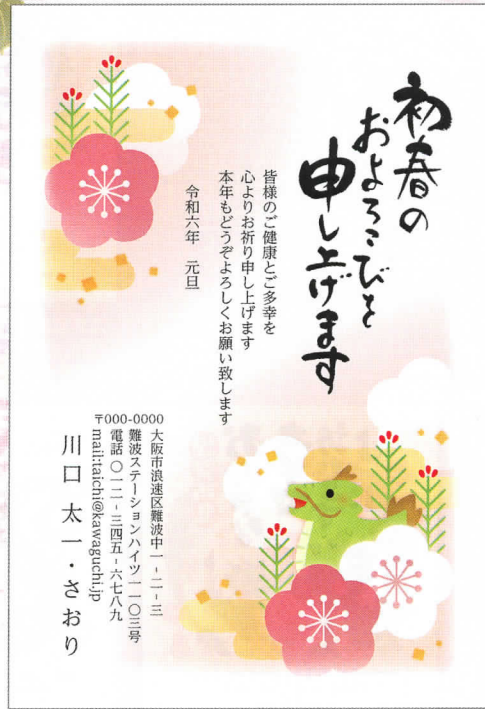 初春の
およろこびを
申し上げます
皆様のご健康とご多幸を
心よりお祈り申し上げます
本年もどうぞよろしくお願い致します
令和六年　元旦
〒000-0000
大阪市浪速区難波中一-二-三
難波ステーションハイツ一一〇三号
電話 〇一二-三四五-六七八九
mail:taichi@kawaguchi.jp
川口 太一・さおり